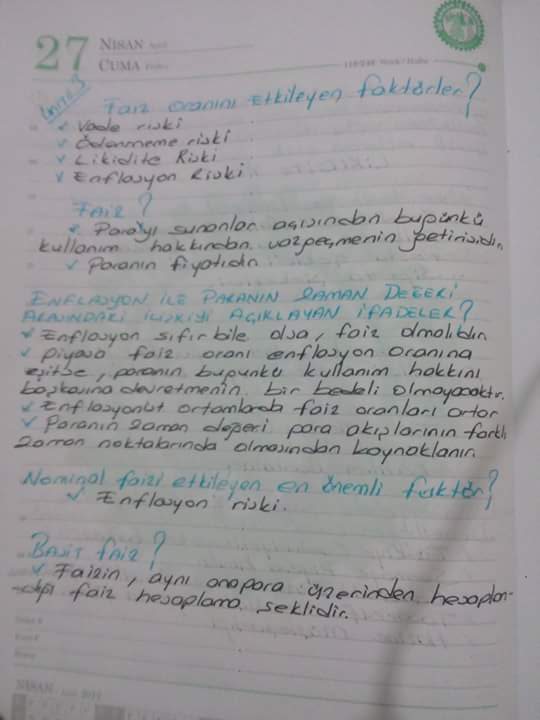 27 NİSAN April
CUMA Friday
Ünite 3
Faiz oranını Etkileyen faktörler?
✓ Vade riski
✓ Ödenmeme riski
✓ Likidite Riski
✓ Enflasyon Riski
Faiz?
✓ Parayı sunanlar açısından bugünkü
kullanım hakkından vazgeçmenin getirisidir.
✓ Paranın fiyatıdır.
ENFLASYON İLE PARANIN ZAMAN DEĞERİ
ARASINDAKİ İLİŞKİYİ AÇIKLAYAN İFADELER?
✓ Enflasyon sıfır bile olsa, faiz olmalıdır.
✓ Piyasa faiz oranı enflasyon oranına
eşitse, paranın bugünkü kullanım hakkını
başkasına devretmenin bir bedeli olmayacaktır.
✓ Enflasyonist ortamlarda faiz oranları artar
✓ Paranın zaman değeri para akışlarının farklı
zaman noktalarında olmasından kaynaklanır.
Nominal faizi etkileyen en önemli faktör?
✓ Enflasyon riski.
Basit faiz?
✓ Faizin, aynı anapara üzerinden hesaplan-
dığı faiz hesaplama şeklidir.